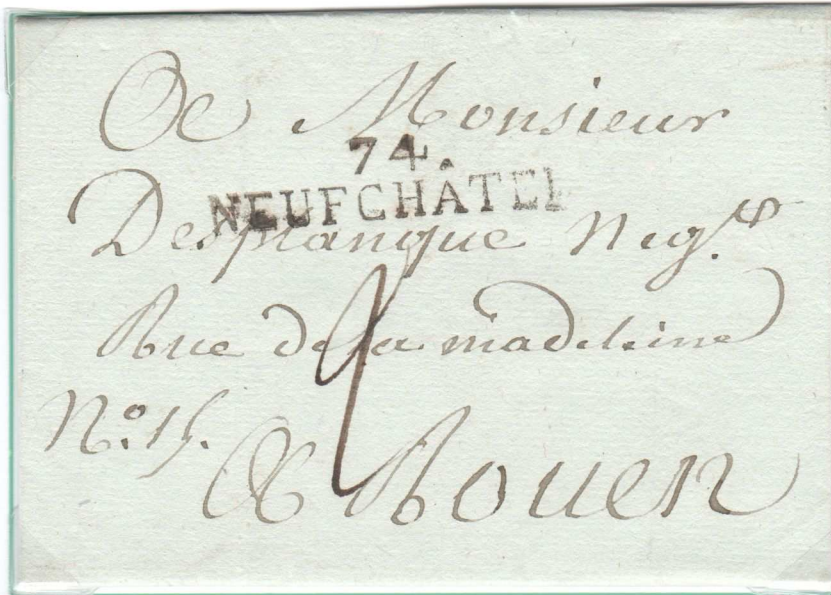 A Monsieur
74.
NEUFCHÂTEL
Desplanque Neg.t
Rue de la madeleine
N.o 15.
2
A Rouen